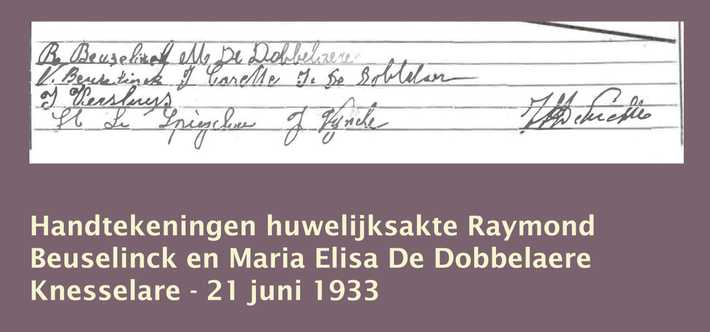 R. Beuselinck M De Dobbelaere
V. Beuselinck J Carette J. De Dobbelaere
J Versluys
J Vynche
Handtekeningen huwelijksakte Raymond
Beuselinck en Maria Elisa De Dobbelaere
Knesselare - 21 juni 1933